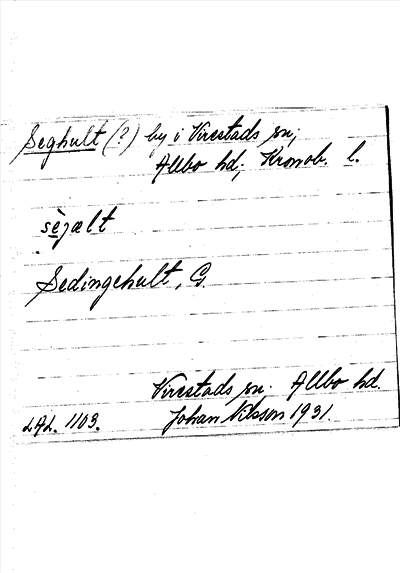 Seghult (?) by i Virestads sn,
Allbo hd, Kronob. l.
sèjælt
Sedingehult, G.
Virestads sn. Allbo hd.
LAL. 1103. Johan Nilsson 1931.